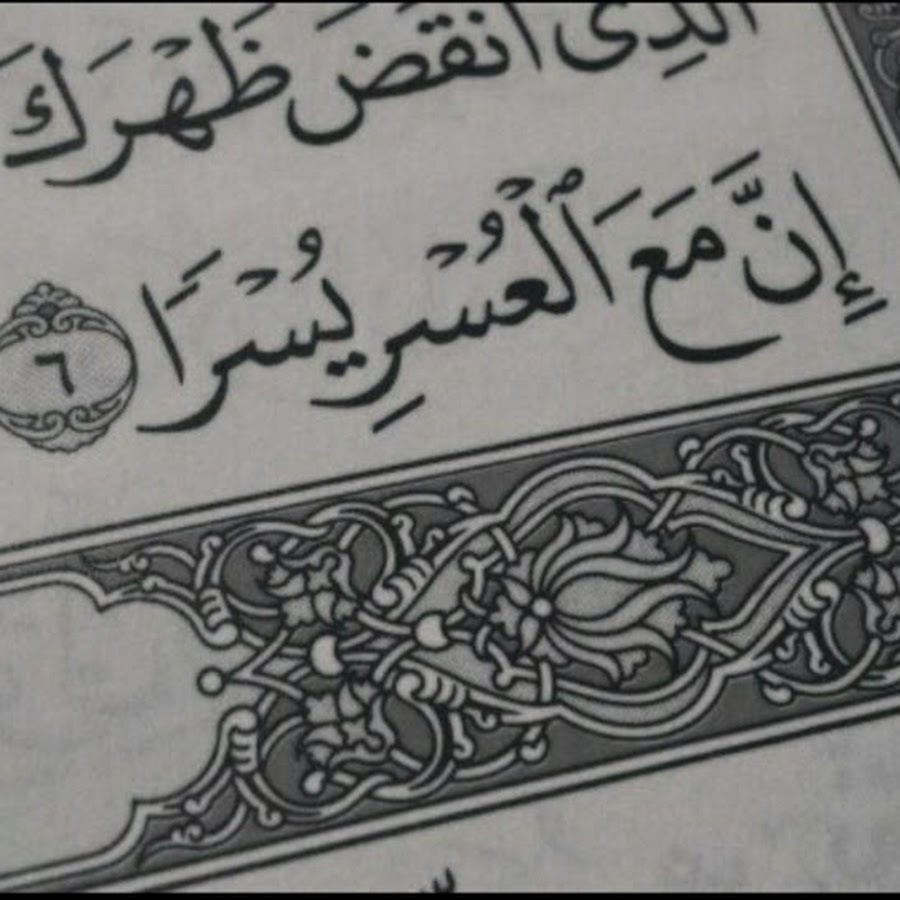 الَّذِي أَنقَضَ ظَهْرَكَ
إِنَّ مَعَ ٱلْعُسْرِ يُسْرًا ٦